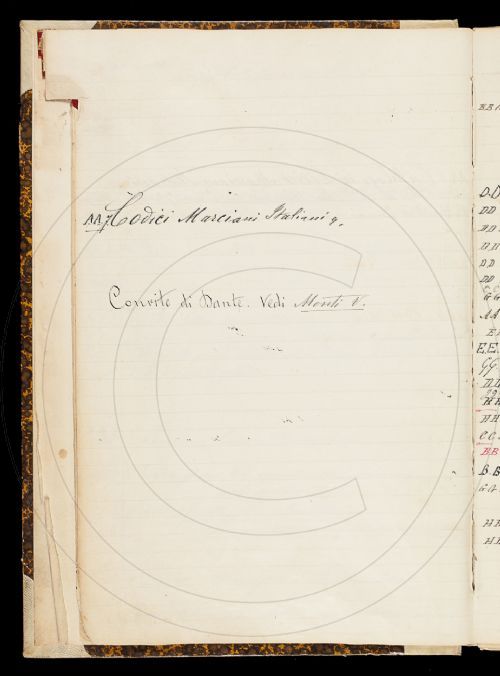 AA7 Codici Marciani Italiani 9.
Convito di Dante. Vedi Monti V.
D.D
DD
DD
GG
AA
E.E.
GG.
HH
HH
CC
BB
B.B
GG
HH
HH